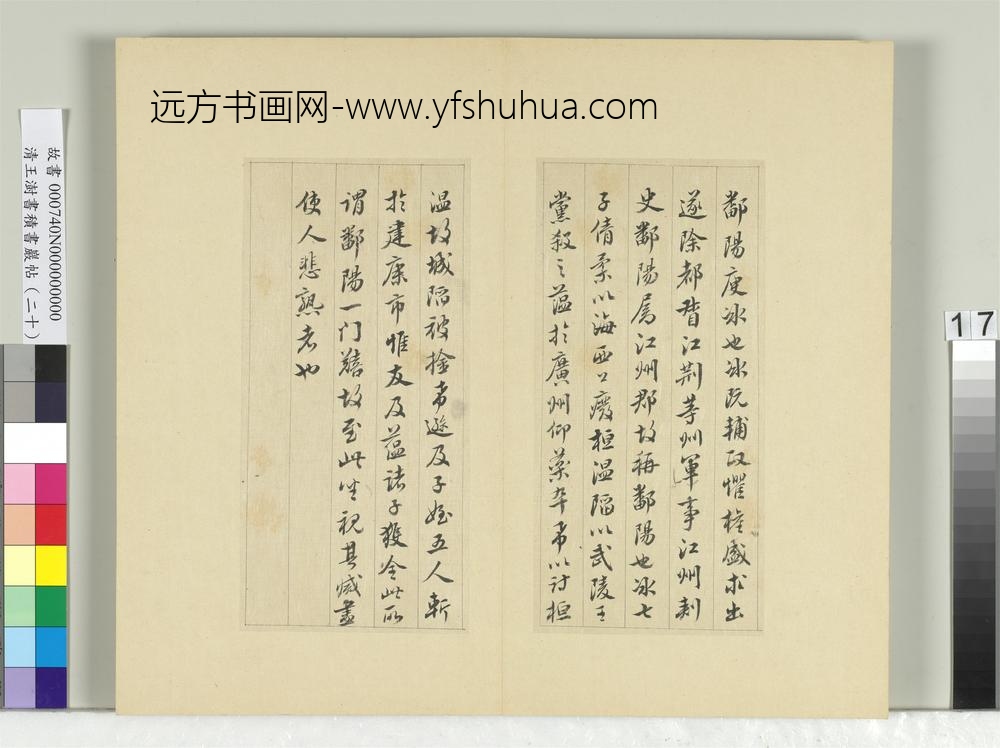 远方书画网-www.yfshuhua.com
鄱陽庾冰也冰既輔政懼權盛求出
遂除都督江荊等州軍事江州刺
史鄱陽屬江州郡故稱鄱陽也冰七
子倩柔以海西公廢桓温陷以武陵王
黨殺之蕴於廣州仰藥卒希以討桓
温故城陷被擒希邈及子姪五人斬
於建康市惟友及蕴諸子獲全此所
謂鄱陽一门故至此坐視其滅盡
使人悲熟者也
故書 000740N000000000
清王澍書積書巖帖(二十)
17